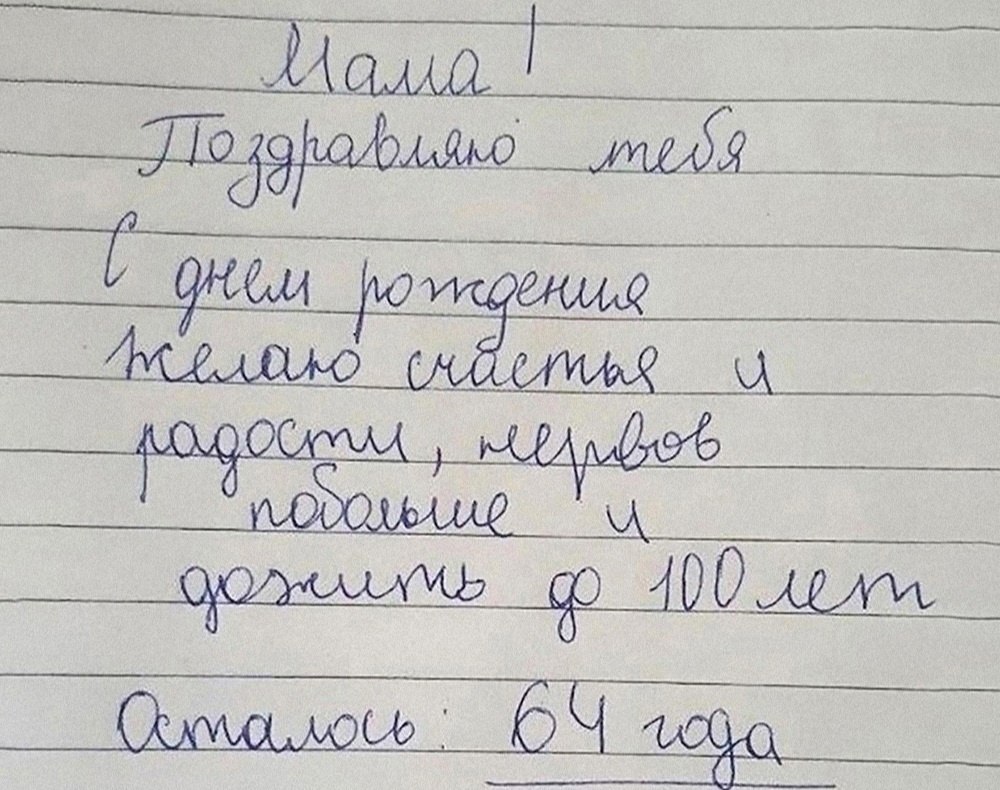 Мама!
Поздравляю тебя
С днем рождения
желаю счастья и
радости, нервов
побольше и
дожить до 100 лет
Осталось: 64 года